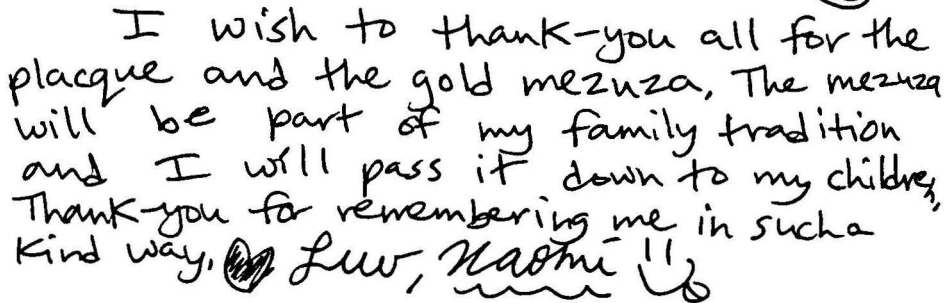 I wish to thank-you all for the
placque and the gold mezuza. The mezuza
will be part of my family tradition
and I will pass it down to my children,
Thank-you for remembering me in such a
kind way. Luv, Naomi